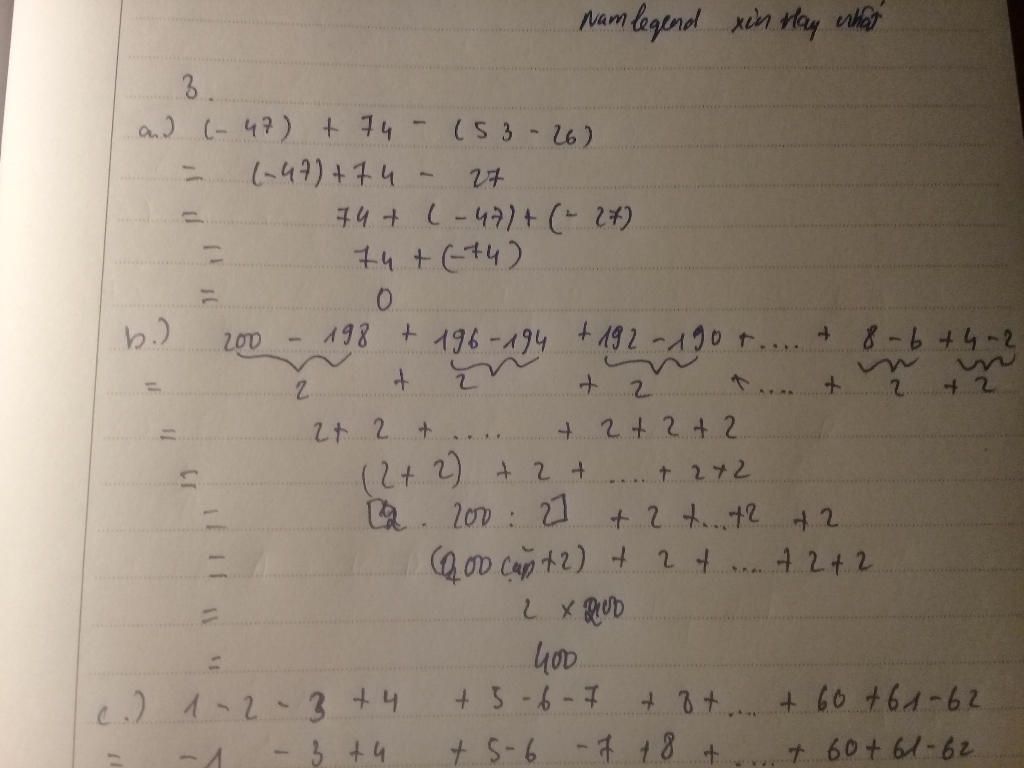 Nam legend xin Hay nhất
3.
a.) (- 47) + 74 - (53 - 26)
= (-47) + 74 - 27
= 74 + (-47) + (- 27)
= 74 + (-74)
= 0
b.) 200 - 198 + 196 - 194 + 192 - 190 + .... + 8 - 6 + 4 - 2
= 2 + 2 + 2 + .... + 2 + 2
= 2 + 2 + .... + 2 + 2 + 2
= (2 + 2) + 2 + .... + 2 + 2
= [2 . 200 : 2] + 2 + ... + 2 + 2
= (200 cặp + 2) + 2 + .... + 2 + 2
= 2 × 200
= 400
c.) 1 - 2 - 3 + 4 + 5 - 6 - 7 + 8 + .... + 60 + 61 - 62
= -1 - 3 + 4 + 5 - 6 - 7 + 8 + .... + 60 + 61 - 62